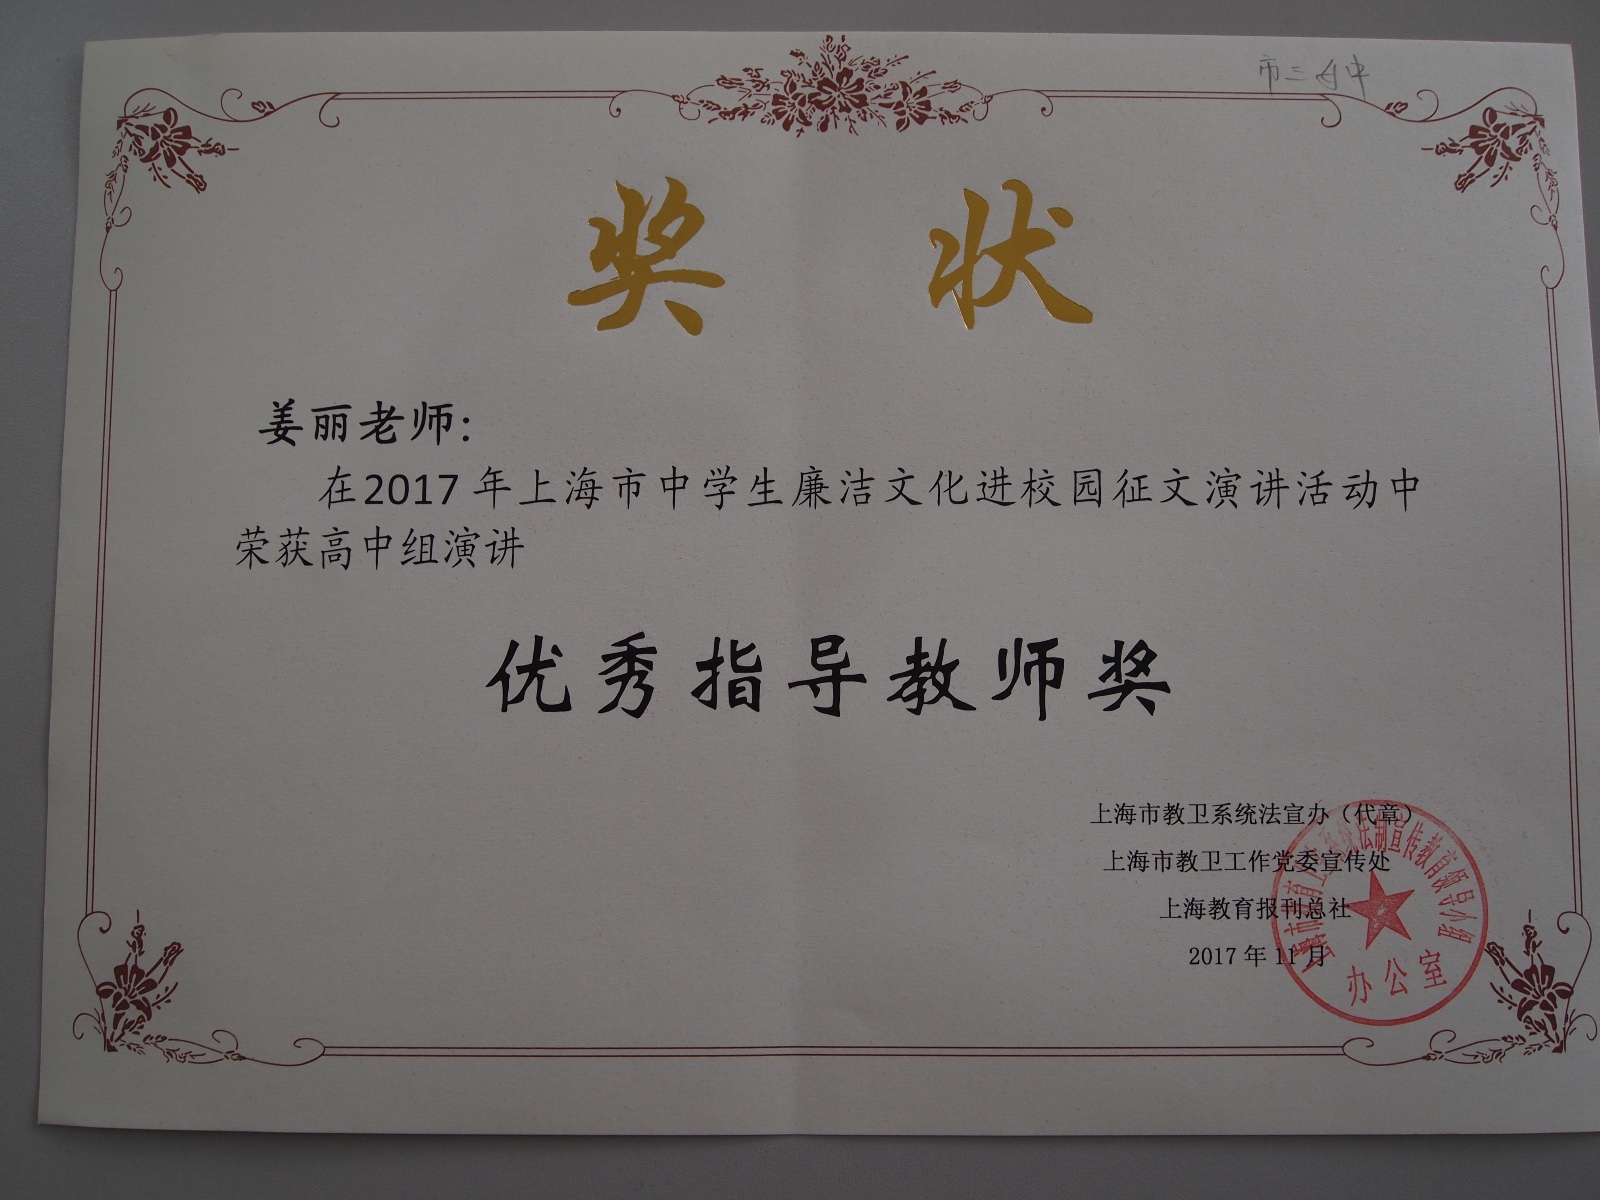 市三女中
奖状
姜丽老师:
在2017年上海市中学生廉洁文化进校园征文演讲活动中
荣获高中组演讲
优秀指导教师奖
上海市教卫系统法宣办（代章）
上海市教卫工作党委宣传处
上海教育报刊总社
2017年11月
上海市教育卫生系统法制宣传教育领导小组
办公室